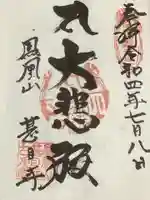 奉拝 令和四年七月八日
大悲殿
鳳凰山
甚目寺